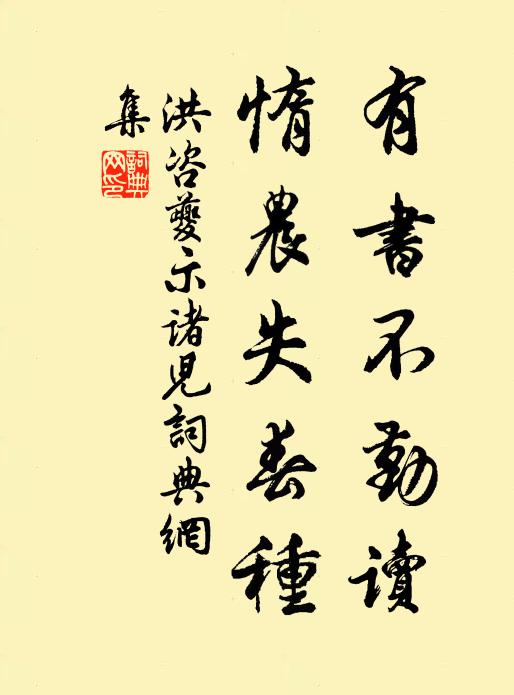 有書不勤讀
惰農失春種
洪咨夔示諸兒詞典網
集
詞典網印